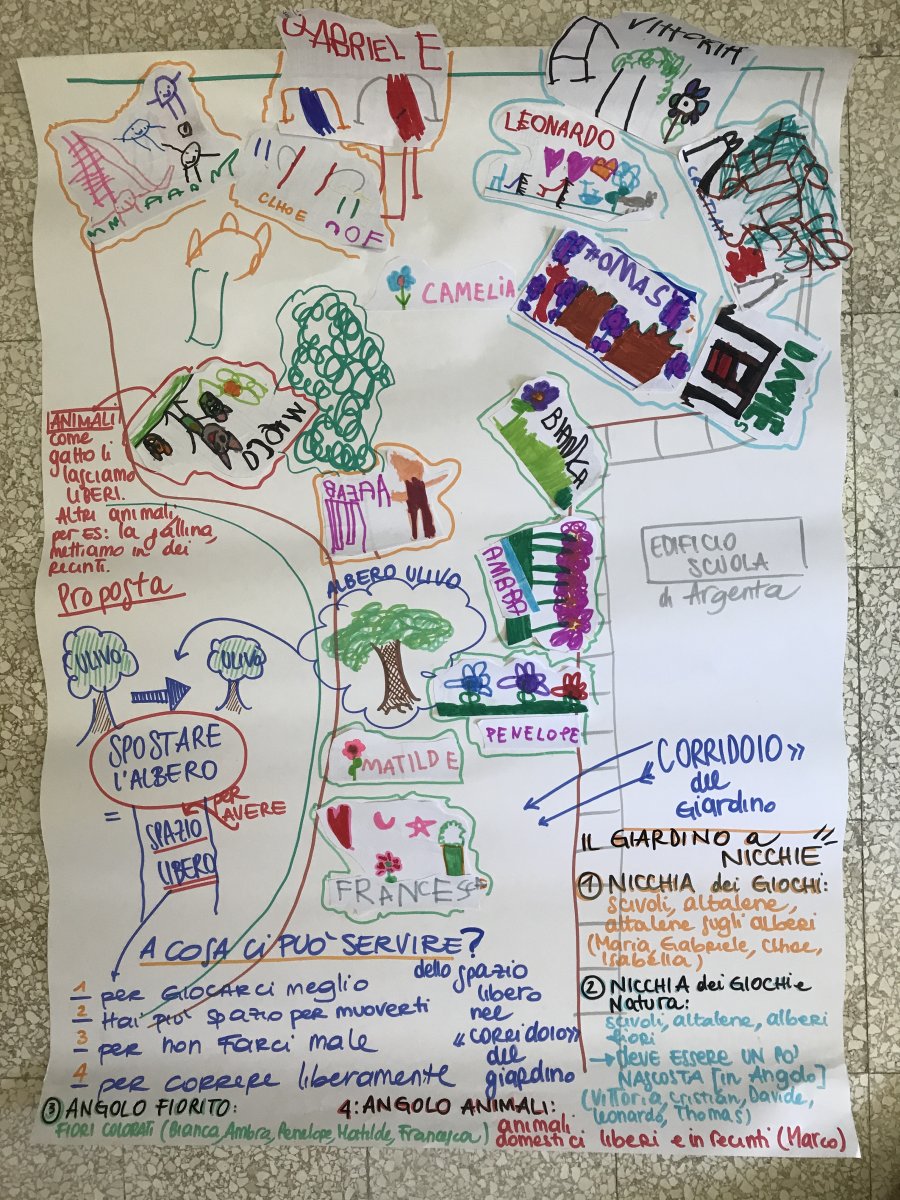 GABRIELE
VITTORIA
LEONARDO
CLHOE
CAMELIA
THOMAS
DAVIDE
BIANCA
AMBRA
ANIMALI
come
gatto li
lasciamo
LIBERI.
Altri animali,
per es: la gallina,
mettiamo in dei
recinti.
Proposta
ULIVO
ULIVO
SPOSTARE
L'ALBERO
=
per
AVERE
SPAZIO
LIBERO
ALBERO ULIVO
EDIFICIO
SCUOLA
di Argenta
PENELOPE
MATILDE
FRANCESCA
"CORRIDOIO"
del
Giardino
IL GIARDINO a
NICCHIE
1 NICCHIA dei GIOCHI:
scivoli, altalene,
altalene sugli alberi
(Maria, Gabriele, Clhoe,
Isabella)
2 NICCHIA dei GIOCHI e
Natura:
scivoli, altalene, alberi
fiori
→ DEVE ESSERE UN PO'
NASCOSTA [in Angolo]
(Vittoria, Cristian, Davide,
Leonardo, Thomas)
A COSA CI PUO' SERVIRE?
dello spazio
libero
nel
"CORRIDOIO"
del
giardino
1 - per GIOCARCI meglio
2 - Hai più spazio per muoverti
3 - per non farci male
4 - per correre liberamente
3 ANGOLO FIORITO:
FIORI COLORATI (Bianca, Ambra, Penelope, Matilde, Francesca)
4: ANGOLO ANIMALI:
animali
domestici liberi e in recinti (Marco)